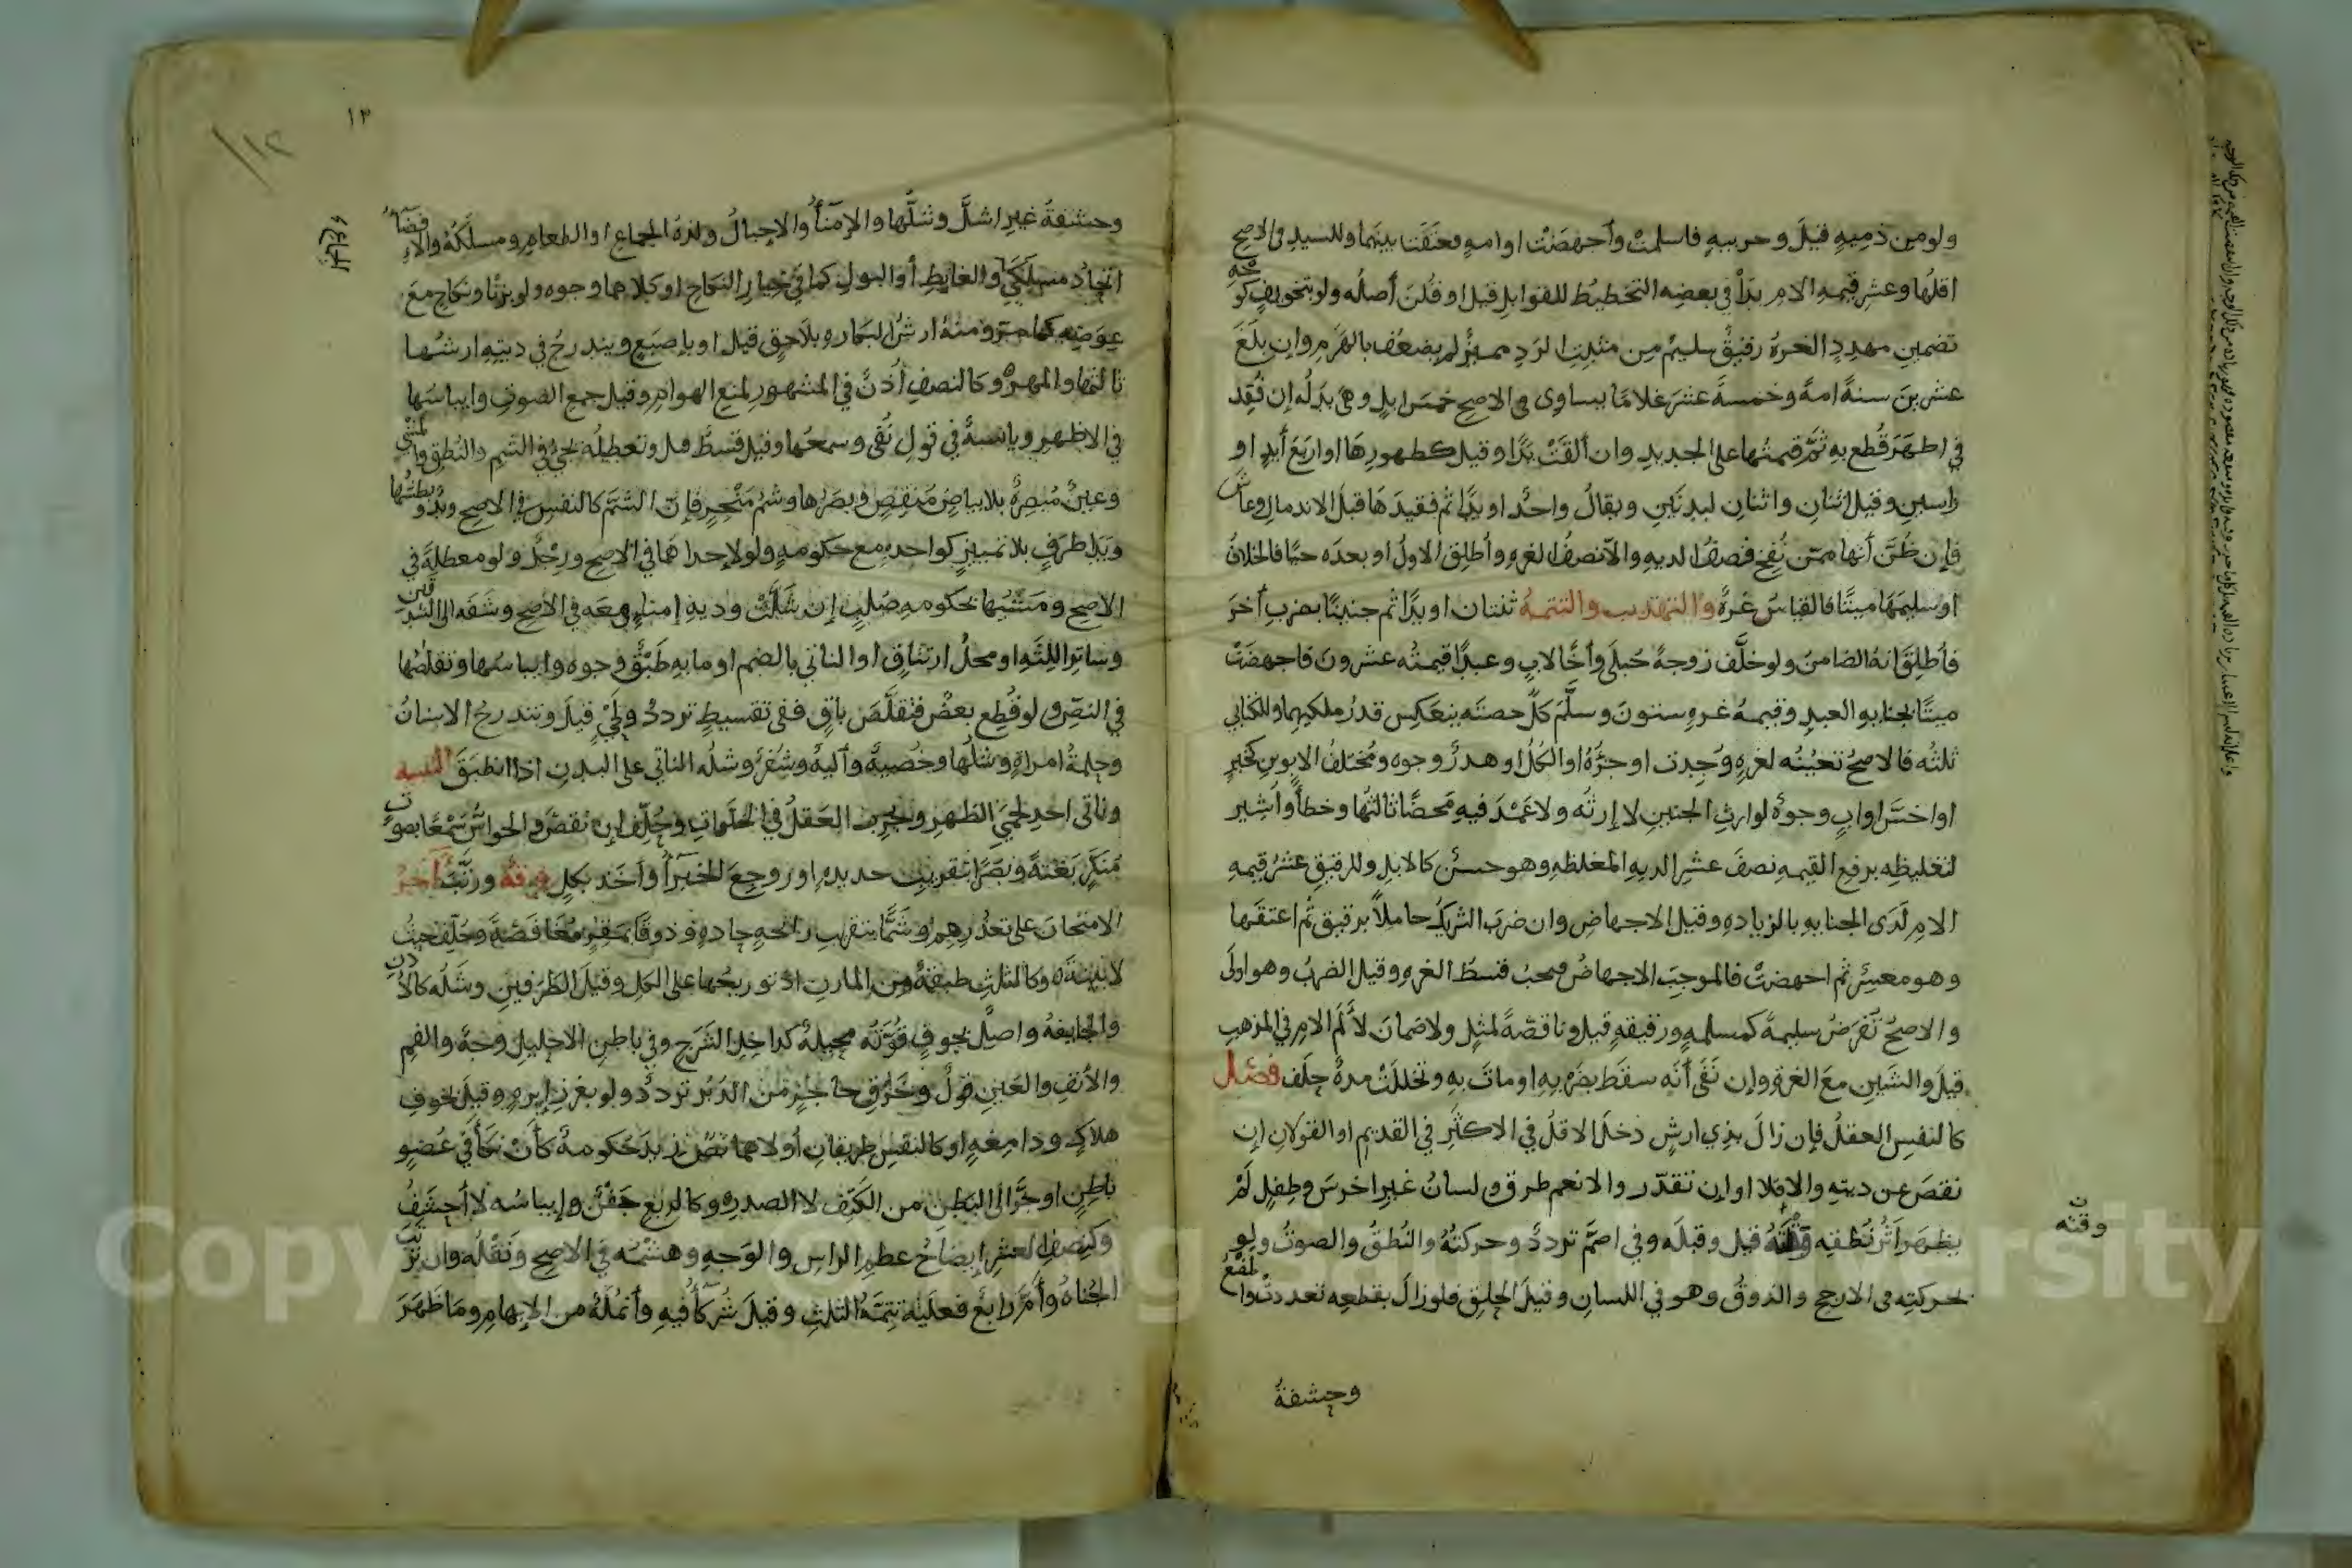 ولو من ذميه قيل وحربيه فاسلمت وأجهضت او امه فعتقت بينهما وللسيد في الاصح
اقلها وعشر قيمه الام بدأ في بعضه التخطيط للقوابل قيل او قلن أصله ولو بتخويف كو
تضمين مهدد الحره رقيق سليم من مثبت الرد مميز لم يضعف بالهرم وان بلغ
عشرين سنة امة وخمسة عشر غلاما يساوى في الاصح خمس ابل وهى بدله إن فقد
في اظهر قطع به ثم قيمتها على الجديد وان ألقت يدا وقيل كظهورها او اربع أيد او
راسين وقيل اثنان واثنان لبدنين ويقال واحد او يدا ثم فقيدها قبل الاندمال وعاش
فإن ظن أنها ممن نفخ فنصف الديه والا نصف الغره وأطلق الاول او بعده حيا فالخلاف
او سليمها ميتا فالقياس غرة والتهذيب والتتمة ثنتان او يدا ثم جنينا بضرب أخر
فأطلق انه الضامن ولو خلف زوجة حبلى وأخا لاب وعبدا قيمته عشرون فاجهضت
ميتا بجنايه العبد وقيمة غره ستون وسلم كل حصته ينعكس قدر ملكيهما وللكتابي
ثلثه فالاصح تعينه لغره وجدت او جزؤه او الكل او هدر وجوه ومختلف الابوين كخير
او اخس او اب وجوه لوارث الجنين لا إرثه ولا عمد فيه محضا ثالثها وخطأ وأشير
لتغليظه برفع القيمه نصف عشر الديه المغلظه وهو حسن كالابل وللرقيق عشر قيمه
الام لدى الجنايه بالزياده وقيل الاجهاض وان ضرب الشريك حاملا برقيق ثم اعتقها
وهو معسر ثم اجهضت فالموجب الاجهاض فيجب قسط الغره وقيل الضرب وهو اولى
والاصح تفرض سليمة كمسلمه ورقيقه قيل وناقصة لمثل ولا ضمان لألم الام في المذهب
قيل والشين مع الغره وإن نفى أنه سقط بضربه او مات به وتخللت مدة حلف فصل
كالنفس العقل فإن زال بذي ارش دخل الاقل في الاكثر في القديم او القولان إن
نقص عن ديته والا فلا او إن تقدر والا نعم طرق ولسان غير اخرس وطفل لم
يظهر أثر نطقه قيل وقبله وفي اصم تردد وحركته والنطق والصوت ولو
وقته
بحركته في الارجح والذوق وهو في اللسان وقيل الحلق فلو زال بقطعه تعددت
وحشفة
١٣
١٢
وحشفة غير اشل وشلها والإمناء والاحبال ولذة الجماع او الطعام ومسلكه والإفضاء
اتحاد مسلكي والغايط أو البول كما في خيار النكاح او كلاهما وجوه ولو بزنا ونكاح مع
عوضه كما مر ومنه ارش البكاره بلا حق قيل او بإصبع ويندرج في ديته ارشها
ثالثها والمهر وكالنصف أذن في المشهور لمنع الهوام وقيل جمع الصوت وإيباسها
في الاظهر ويابسة في قول نفى وسمعها وقيل قسط هل وتعطيله يجئ في الشم والنطق والمشي
وعين مبصرة بلا بياض منقص وبصرها وشم منخر فإن الشم كالنفس في الاصح ويد وبطشها
ويد طرف بلا تمييز كواحده مع حكومه ولو لإحداهما في الاصح ورجل ولو معطلة في
الاصح ومشيها بحكومه صلب إن شلت وديه إمناء معه في الاصح وشفه الى الشدقين
وساتر اللثه او محل ارتتاق او الناتي بالضم او ما به طبق وجوه وإيباسها وتقلصها
في النص ولو قطع بعض فتقلص باق ففى تقسيط تردد ولحي قيل وتندرج الاسنان
وحلمة امراة وشلها وخصية وألية وشفر وشله الناتي على البدن اذا انطبق التنبيه
وناتى احد لحمي الظهر ويجرب العقل في الخلوات وحلف إن نقص والحواس سمعا بصوت
منكر بغتة وبصرا بتقريب حديده او روجع الخبرا وأخذ بكل فرقة ورتب أخر
الامتحان على تعذرهم وشما بتقريب رائحه حاده وذوقا بمقر مغافصة وحلف حيث
لا بينة وكالثلث طبقة من المارن او توزيعها على الكل وقيل الطرفين وشله كالأذن
والجايفة واصل جوف قوته محيلة كداخل الشرج وفي باطن الاحليل وجه والفم
والأنف والعين قول وخرق حاجز من الدبر تردد ولو بغرز إبره وقيل لخوف
هلاك ودامغه او كالنفس طريقان أولاهما نص زيد حكومة كأن نكأ في عضو
باطن او جر الى البطن من الكتف لا الصدر وكالربع جفن وإيباسه لا أحشف
وكنصف العشر إيضاح عظم الراس والوجه وهشمه في الاصح ونقله وان ترتب
الجناه وأم رابع فعليه تتمة الثلث وقيل شركاء فيه وأنملة من الإبهام وما ظهر